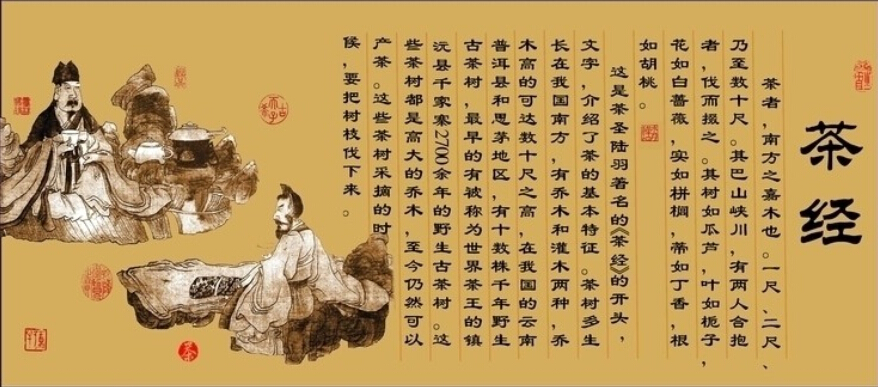 茶经
茶者，南方之嘉木也。一尺、二尺、
乃至数十尺。其巴山峡川，有两人合抱
者，伐而掇之。其树如瓜芦，叶如栀子，
花如白蔷薇，实如栟榈，蒂如丁香，根
如胡桃。
这是茶圣陆羽著名的《茶经》的开头，
文字，介绍了茶的基本特征。茶树多生
长在我国南方，有乔木和灌木两种，乔
木高的可达数十尺之高，在我国的云南
普洱县和思茅地区，有十数株千年野生
古茶树，最早的有被称为世界茶王的镇
沅县千家寨2700余年的野生古茶树。这
些茶树都是高大的乔木，至今仍然可以
产茶。这些茶树采摘的时
候，要把树枝伐下来。